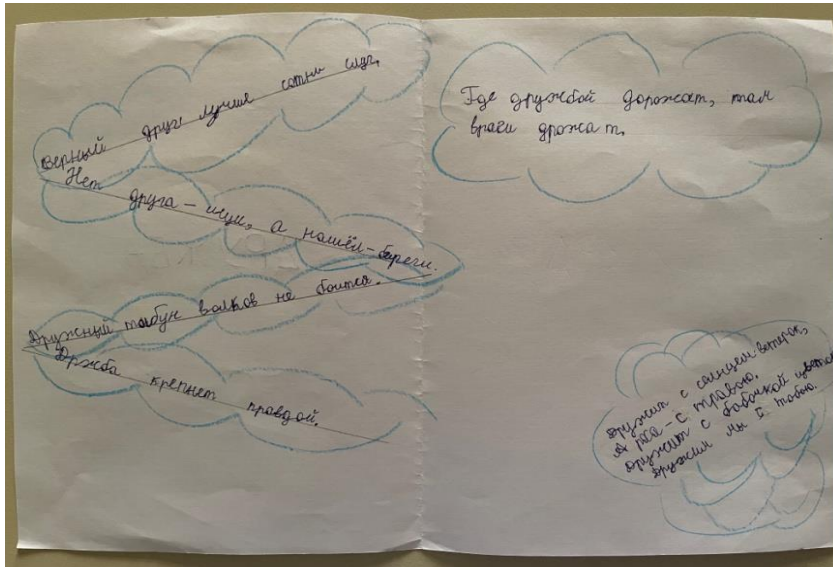 Верный друг лучше сотни слуг.
Нет друга - ищи, а нашёл - береги.
Дружный табун волков не боится.
Држба крепнет правдой.
Где дружбой дорожат, там
враги дрожат.
Дружит с солнцем ветерок,
А роса - с травою.
Дружит с бабочкой цветок
Дружим мы с тобою.